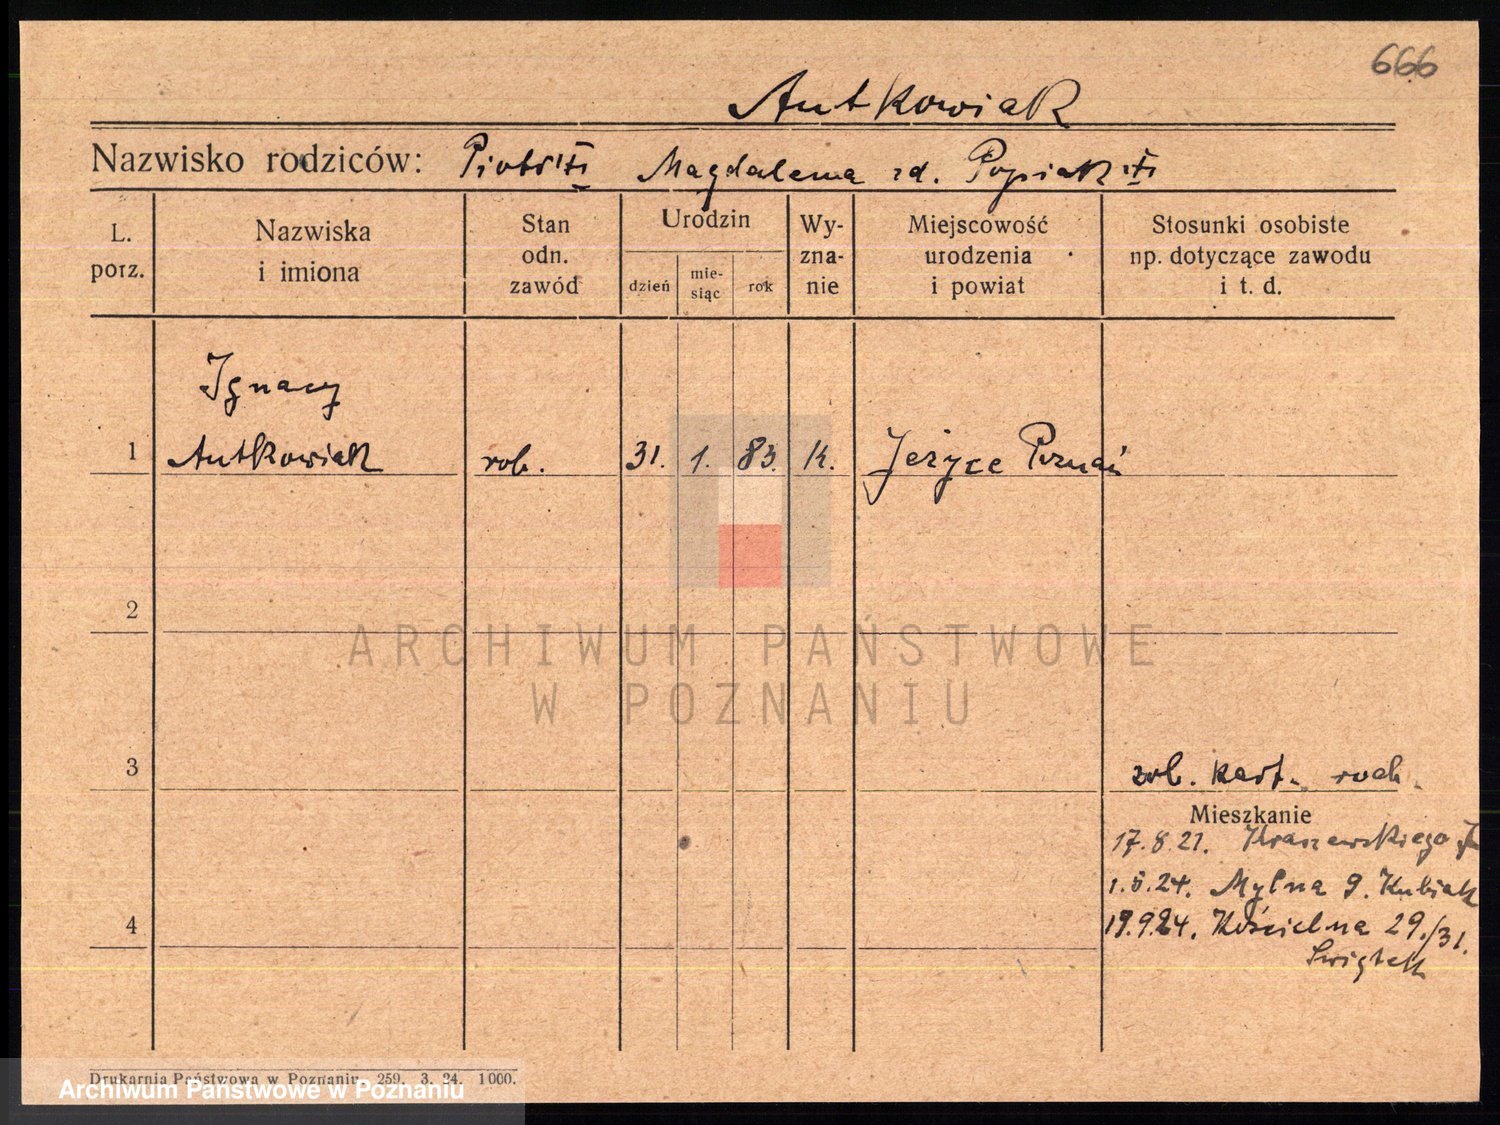 666
Antkowiak
Nazwisko rodziców: Piotr Magdalena zd. Popiak
L. porz.
Nazwiska i imiona
Stan odn. zawód
Urodzin
dzień
mie-
siąc
rok
Wy-
zna-
nie
Miejscowość
urodzenia
i powiat
Stosunki osobiste
np. dotyczące zawodu
i t. d.
Ignacy
1 Antkowiak rob. 31. 1. 83. K. Jeżyce Poznań
2
ARCHIWUM PAŃSTWOWE
W POZNANIU
3 rob.
Mieszkanie
17.8.21. Kraszewskiego
1.5.24. Mylna 9. Kubiak
4 19.9.24. Kościelna 29./31.
Świątek
Drukarnia Państwowa w Poznaniu. 259. 3. 24. 1000.
Archiwum Państwowe w Poznaniu